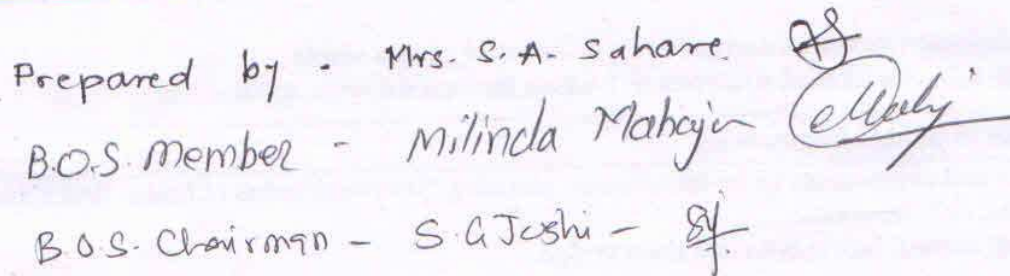 Prepared by - Mrs. S. A. Sahare
B.O.S. Member - Milinda Mahajan
B.O.S. Chairman - S. G Joshi -